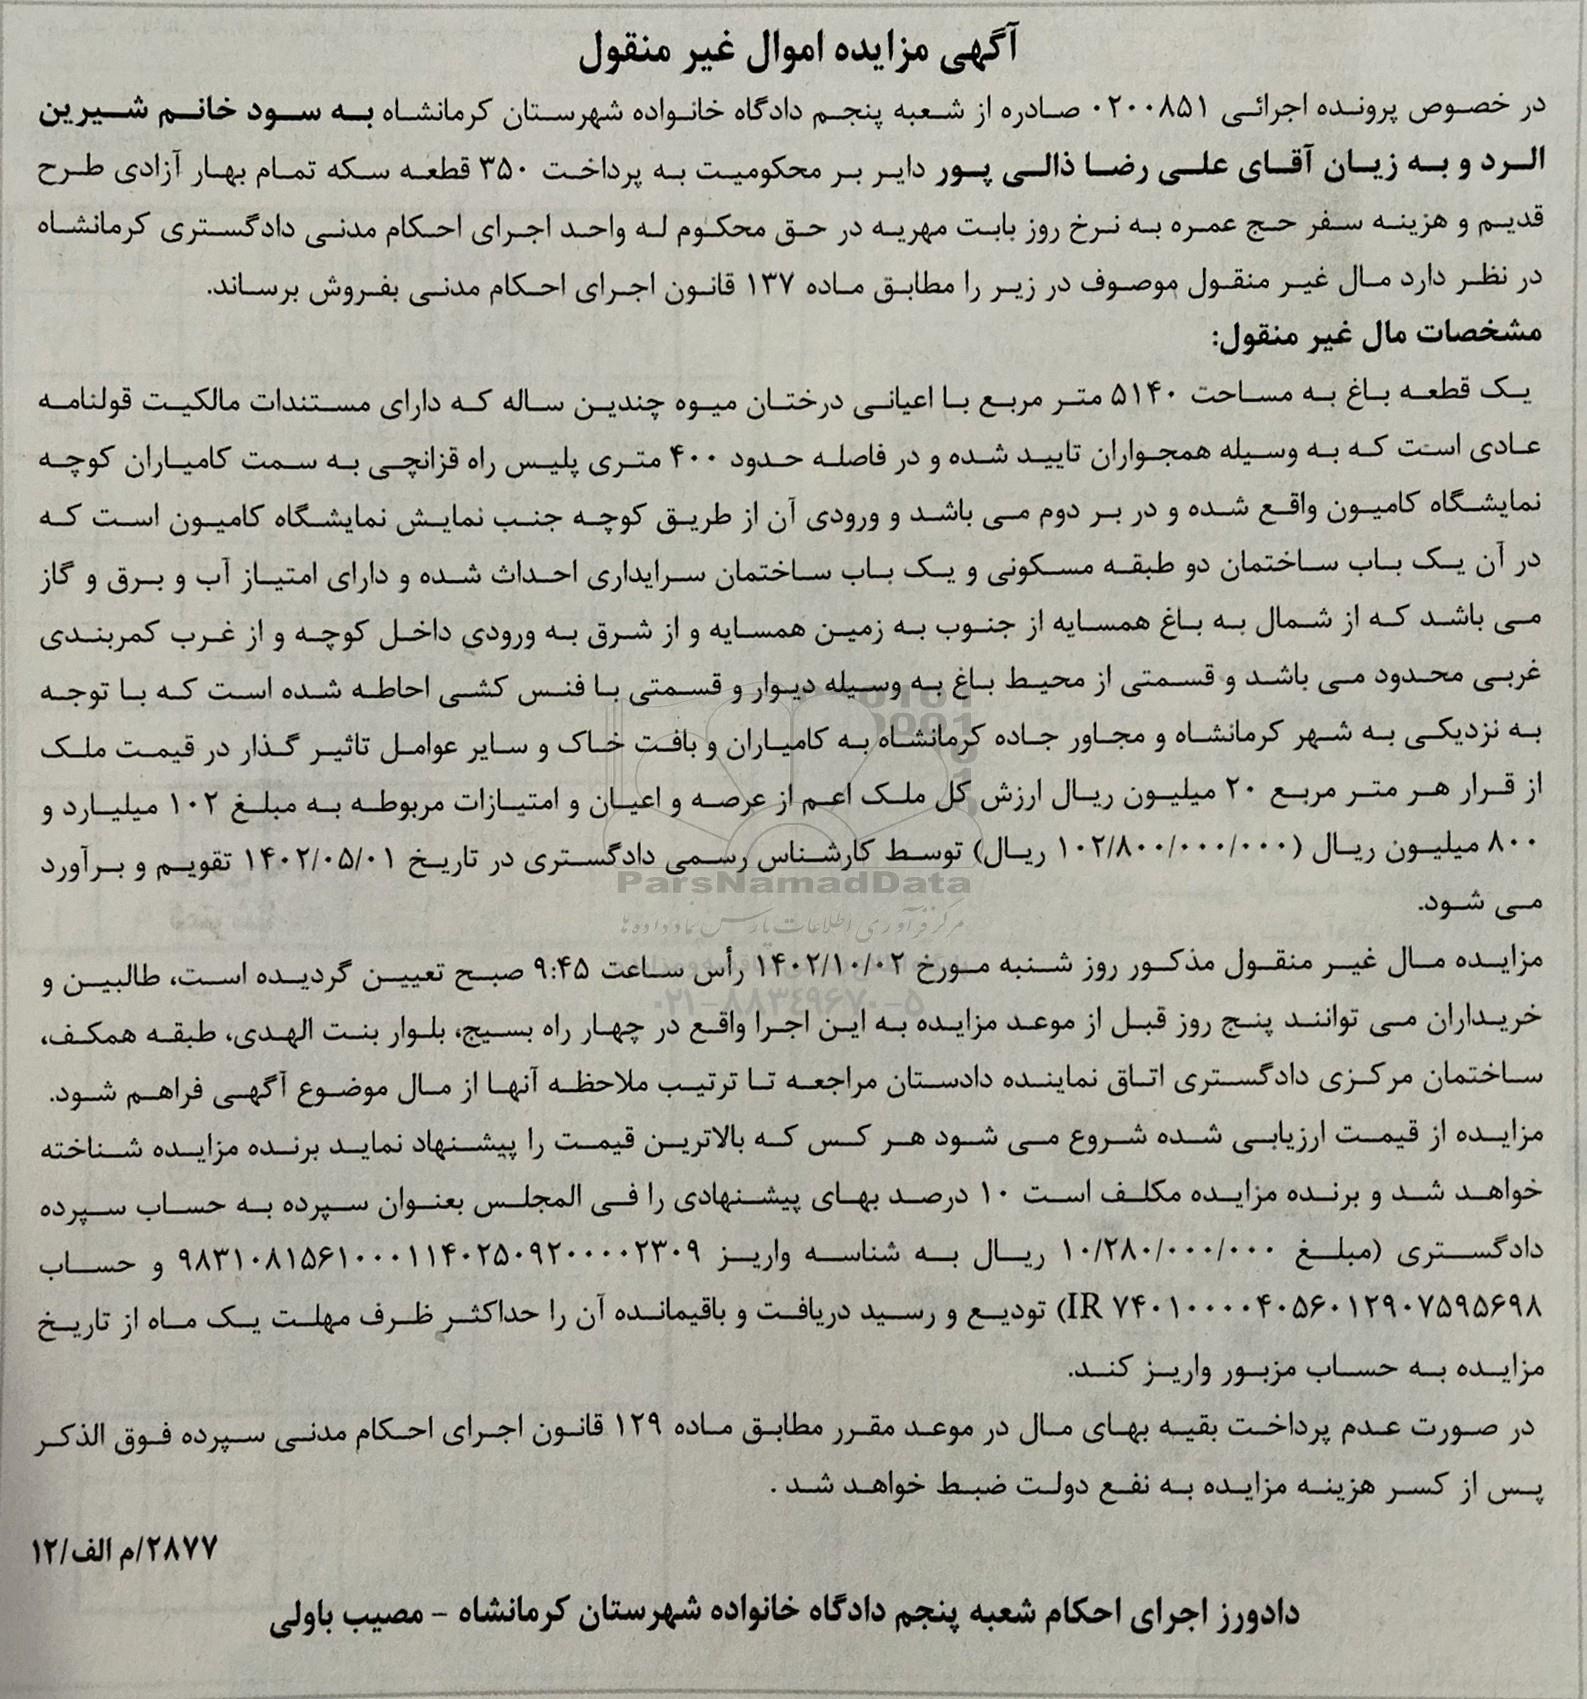 آگهی مزایده اموال غیر منقول
در خصوص پرونده اجرائی ۰۲۰۰۸۵۱ صادره از شعبه پنجم دادگاه خانواده شهرستان کرمانشاه به سود خانم شیرین
الرد و به زیان آقای علی رضا ذالی پور دایر بر محکومیت به پرداخت ۳۵۰ قطعه سکه تمام بهار آزادی طرح
قدیم و هزینه سفر حج عمره به نرخ روز بابت مهریه در حق محکوم له واحد اجرای احکام مدنی دادگستری کرمانشاه
در نظر دارد مال غیر منقول موصوف در زیر را مطابق ماده ۱۳۷ قانون اجرای احکام مدنی بفروش برساند.
مشخصات مال غیر منقول:
یک قطعه باغ به مساحت ۵۱۴۰ متر مربع با اعیانی درختان میوه چندین ساله که دارای مستندات مالکیت قولنامه
عادی است که به وسیله همجواران تایید شده و در فاصله حدود ۴۰۰ متری پلیس راه قزانچی به سمت کامیاران کوچه
نمایشگاه کامیون واقع شده و در بر دوم می باشد و ورودی آن از طریق کوچه جنب نمایش نمایشگاه کامیون است که
در آن یک باب ساختمان دو طبقه مسکونی و یک باب ساختمان سرایداری احداث شده و دارای امتیاز آب و برق و گاز
می باشد که از شمال به باغ همسایه از جنوب به زمین همسایه و از شرق به ورودی داخل کوچه و از غرب کمربندی
غربی محدود می باشد و قسمتی از محیط باغ به وسیله دیوار و قسمتی با فنس کشی احاطه شده است که با توجه
به نزدیکی به شهر کرمانشاه و مجاور جاده کرمانشاه به کامیاران و بافت خاک و سایر عوامل تاثیر گذار در قیمت ملک
از قرار هر متر مربع ۲۰ میلیون ریال ارزش کل ملک اعم از عرصه و اعیان و امتیازات مربوطه به مبلغ ۱۰۲ میلیارد و
۸۰۰ میلیون ریال (۱۰۲/۸۰۰/۰۰۰/۰۰۰ ریال) توسط کارشناس رسمی دادگستری در تاریخ ۱۴۰۲/۰۵/۰۱ تقویم و برآورد
ParsNamadData
می شود.
مرکز فرآوری اطلاعات پارس نماد داده ها
مزایده مال غیر منقول مذکور روز شنبه مورخ ۱۴۰۲/۱۰/۰۲ رأس ساعت ۹:۴۵ صبح تعیین گردیده است، طالبین و
۰۲۱-۸۸۳۴۹۶۷۰-۵
خریداران می توانند پنج روز قبل از موعد مزایده به این اجرا واقع در چهار راه بسیج، بلوار بنت الهدی، طبقه همکف،
ساختمان مرکزی دادگستری اتاق نماینده دادستان مراجعه تا ترتیب ملاحظه آنها از مال موضوع آگهی فراهم شود.
مزایده از قیمت ارزیابی شده شروع می شود هر کس که بالاترین قیمت را پیشنهاد نماید برنده مزایده شناخته
خواهد شد و برنده مزایده مکلف است ۱۰ درصد بهای پیشنهادی را فی المجلس بعنوان سپرده به حساب سپرده
دادگستری (مبلغ ۱۰/۲۸۰/۰۰۰/۰۰۰ ریال به شناسه واریز ۹۸۳۱۰۸۱۵۶۱۰۰۰۱۱۴۰۲۵۰۹۲۰۰۰۰۲۳۰۹ و حساب
IR ۷۴۰۱۰۰۰۰۴۰۵۶۰۱۲۹۰۷۵۹۵۶۹۸) تودیع و رسید دریافت و باقیمانده آن را حداکثر ظرف مهلت یک ماه از تاریخ
مزایده به حساب مزبور واریز کند.
در صورت عدم پرداخت بقیه بهای مال در موعد مقرر مطابق ماده ۱۲۹ قانون اجرای احکام مدنی سپرده فوق الذکر
پس از کسر هزینه مزایده به نفع دولت ضبط خواهد شد .
۲۸۷۷/م الف/۱۲
دادورز اجرای احکام شعبه پنجم دادگاه خانواده شهرستان کرمانشاه - مصیب باولی